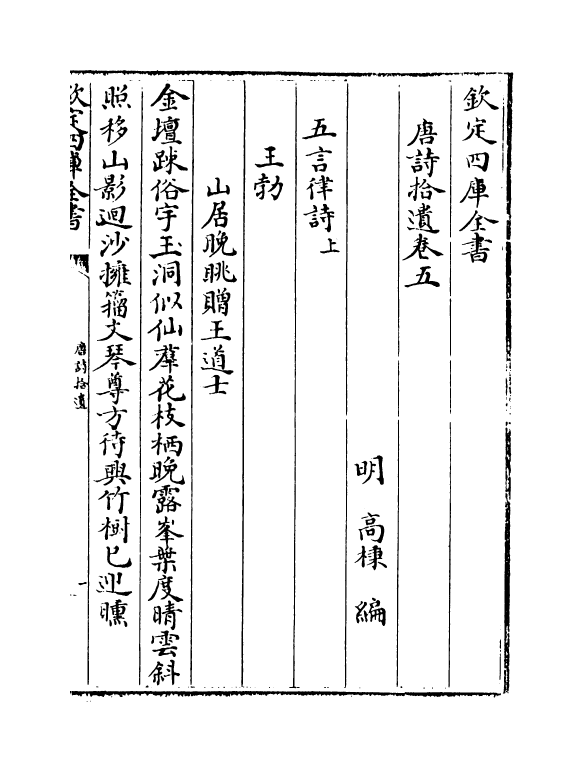 欽定四庫全書
唐詩拾遺卷五
明 高棅 編
五言律詩上
王勃
山居晚眺贈王道士
金壇疎俗宇玉洞似仙羣花枝栖晚露峯葉度晴雲斜
照移山影迴沙擁籀文琴尊方待興竹樹已迎曛
欽定四庫全書
唐詩拾遺
一